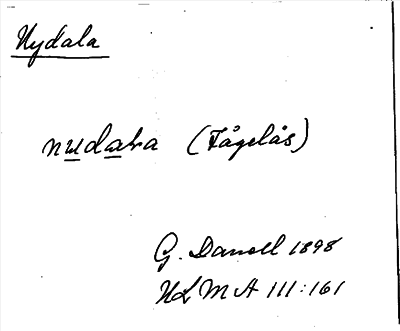 Nydala
nudala (Fågelås)
G. Danell 1898
ULMA 111:161